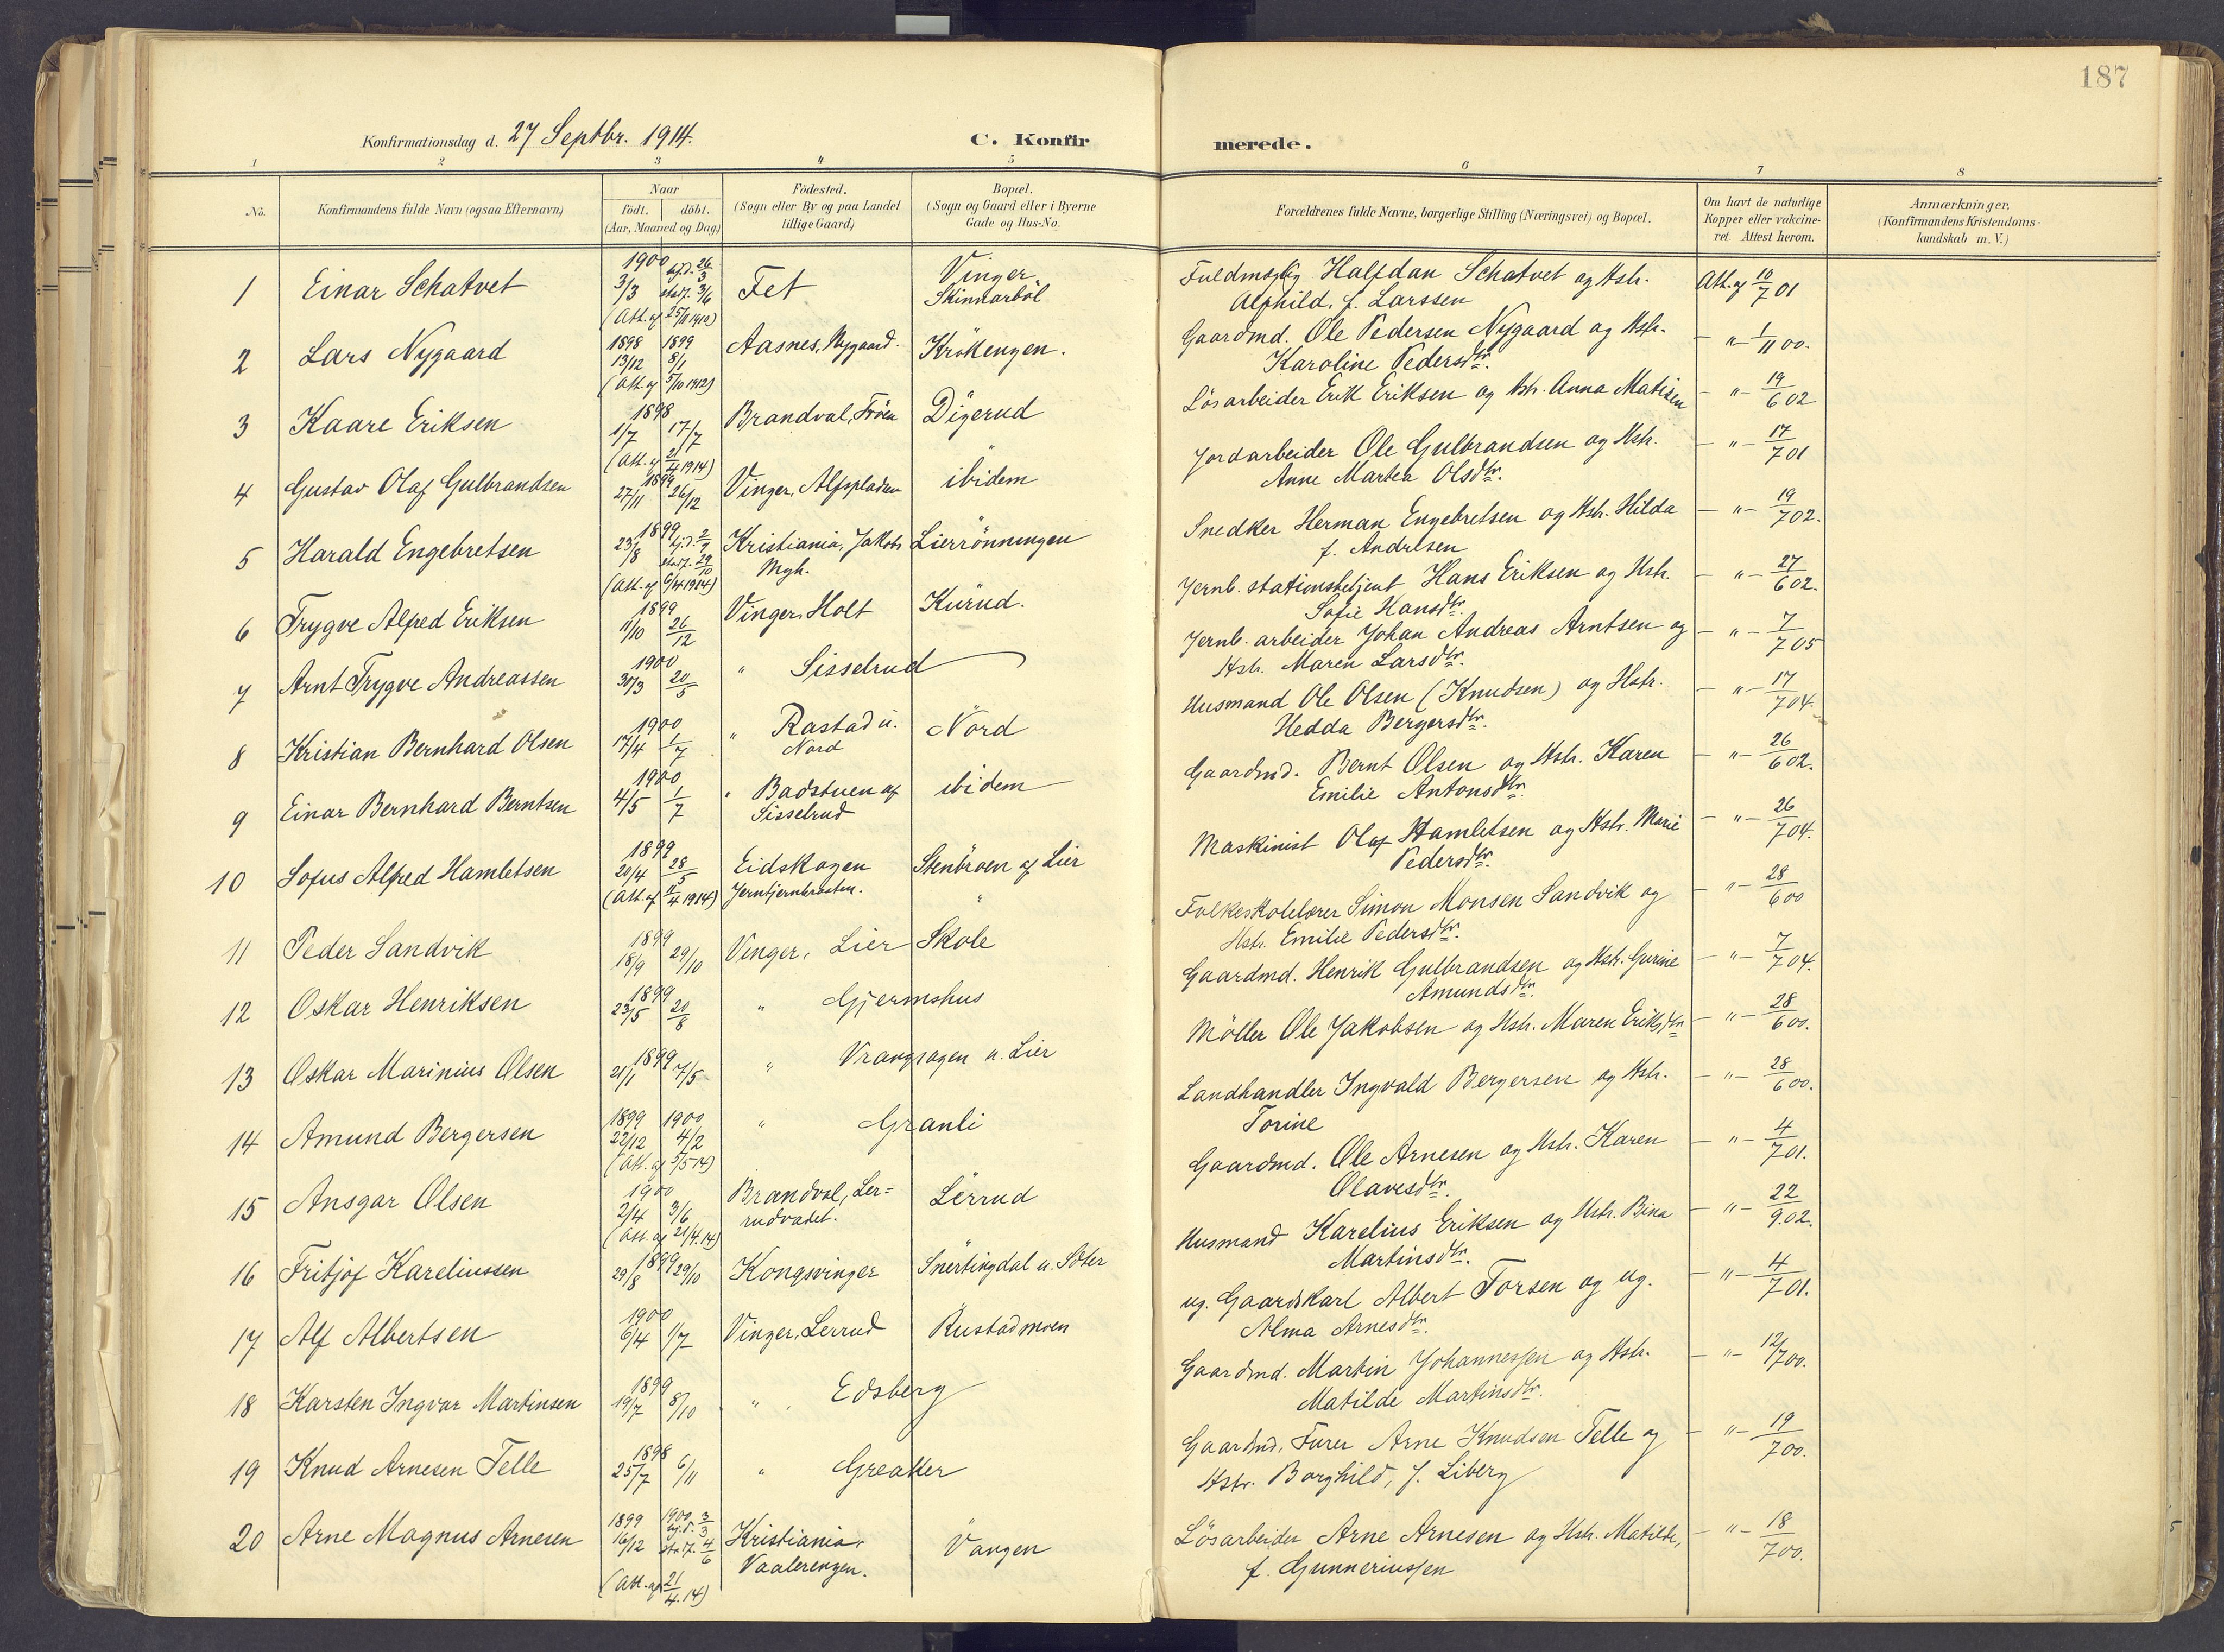 187
Konfirmationsdag d. 27 Septbr. 1914.
C. Konfirmerede.
1 2 3 4 5 6 7 8
No.
Konfirmandens fulde Navn (ogsaa Efternavn)
Naar
födt. döbt.
(Aar, Maaned og Dag)
Födested.
(Sogn eller By og paa Landet
tillige Gaard)
Bopæl.
(Sogn og Gaard eller i Byerne
Gade og Hus-No.
Forældrenes fulde Navne, borgerlige Stilling (Næringsvei) og Bopæl.
Om havt de naturlige
Kopper eller vakcine-
ret. Attest herom.
Anmærkninger,
(Konfirmandens Kristendoms-
kundskab m. V.)
1 Einar Schatvet 1900 3/3 hjd. 26/3 stadf. 3/6 Fet Vinger Skinnarböl
(Att. af 25/11 1912)
Fuldmægtig Halfdan Schatvet og Hstr. Att. af 10/7 01
Alfhild, f. Larssen
2 Lars Nygaard 1898 13/12 1899 8/1 Aasnes, Nygaard. Krökengen.
(Att. af 5/10 1912)
Gaardmd. Ole Pedersen Nygaard og Hstr. - " - 1/11 00.
Karoline Pedersdtr.
3 Kaare Eriksen 1898 1/7 17/7 Brandval, Fröen Digerud
(Att. af 2/4 1914)
Lösarbeider Erik Eriksen og Hstr. Anna Matisen - " - 19/6 02
4 Gustav Olaf Gulbrandsen 1899 27/11 26/12 Vinger, Alfspladsen ibidem
Jordarbeider Ole Gulbrandsen og Hstr. - " - 17/7 01
Anne Martea Olsdtr.
5 Harald Engebretsen 1899 23/8 hjd. stadf. 29/10 Kristiania, Jakobs Mgh. Lierrönningen
(Att. af 6/4 1914)
Snedker Herman Engebretsen og Hstr. Hilda - " - 19/7 02.
f. Andresen
6 Trygve Alfred Eriksen 1899 11/10 26/12 Vinger, Holt Kurud.
Jernb. stationsbetjent Hans Eriksen og Hstr. - " - 27/6 02.
Sofie Hansdtr.
7 Arnt Trygve Andreassen 1900 30/3 20/5 " Sisselrud
Jernb. arbeider Johan Andreas Arntsen og - " - 7/7 05
Hstr. Maren Larsdtr.
8 Kristian Bernhard Olsen 1900 17/4 1/7 " Rastad u. Nord Nord
Husmand Ole Olsen (Knudsen) og Hstr. - " - 17/7 04.
Hedda Bergersdtr.
9 Einar Bernhard Berntsen 1900 4/5 1/7 " Badstuen af Sisselrud ibidem
Gaardmd. Bernt Olsen og Hstr. Karen - " - 26/6 02.
Emilie Antonsdtr.
10 Sofus Alfred Hamletsen 1899 20/4 28/5 Eidskogen Jerntjernbraaten. Stenbroen af Lier
(Att. af 11/4 1914)
Maskinist Olaf Hamletsen og Hstr. Marie - " - 26/7 04.
Pedersdtr.
11 Peder Sandvik 1899 18/9 29/10 Vinger, Lier Skole
Folkeskolelærer Simon Monsen Sandvik og - " - 28/6 00
Hstr. Emilie Pedersdtr.
12 Oskar Henriksen 1899 23/5 20/8 " Gjermshus
Gaardmd. Henrik Gulbrandsen og Hstr. Gurine - " - 7/7 04.
Amundsdtr.
13 Oskar Marinius Olsen 1899 21/1 7/5 " Vrangsagen u. Lier
Möller Ole Jakobsen og Hstr. Maren Eriksdtr - " - 28/6 00.
14 Amund Bergersen 1899 22/12 1900 4/2 " Granli
(Att. af 5/5 14)
Landhandler Ingvald Bergersen og Hstr. - " - 28/6 00.
Torine
15 Ansgar Olsen 1900 2/4 3/6 Brandval, Ler=rudvadet. Lerrud
(Att. af 21/4. 14)
Gaardmd. Ole Arnesen og Hstr. Karen - " - 4/7 01.
Olavesdtr.
16 Fritjof Kareliussen 1899 29/8 29/10 Kongsvinger Snertingdal u. Sæter
Husmand Karelius Eriksen og Hstr. Bina - " - 22/9. 02.
Martinsdtr.
17 Alf Albertsen 1900 6/4 1/7 Vinger, Lerrud Rustadmoen
ug. Gaardskarl Albert Torsen og ug. - " - 4/7 01.
Alma Arnesdtr.
18 Karsten Ingvar Martinsen 1899 19/7 8/10 " Edsberg
Gaardmd. Martin Johannessen og Hstr. - " - 12/7 00.
Matilde Martinsdtr.
19 Knud Arnesen Telle 1898 25/7 6/11 " Greaker
Gaardmd. Furer Arne Knudsen Telle og - " - 19/7 00.
Hstr. Borghild, f. Liberg
20 Arne Magnus Arnesen 1899 16/12 1900 hjd. 3/3 stadf. 4/6 Kristiania, Vaalerengen. Vangen
(Att. af 21/4. 14)
Lösarbeider Arne Arnesen og Hstr. Matilde, - " - 18/7 00.
f. Gunneriussen